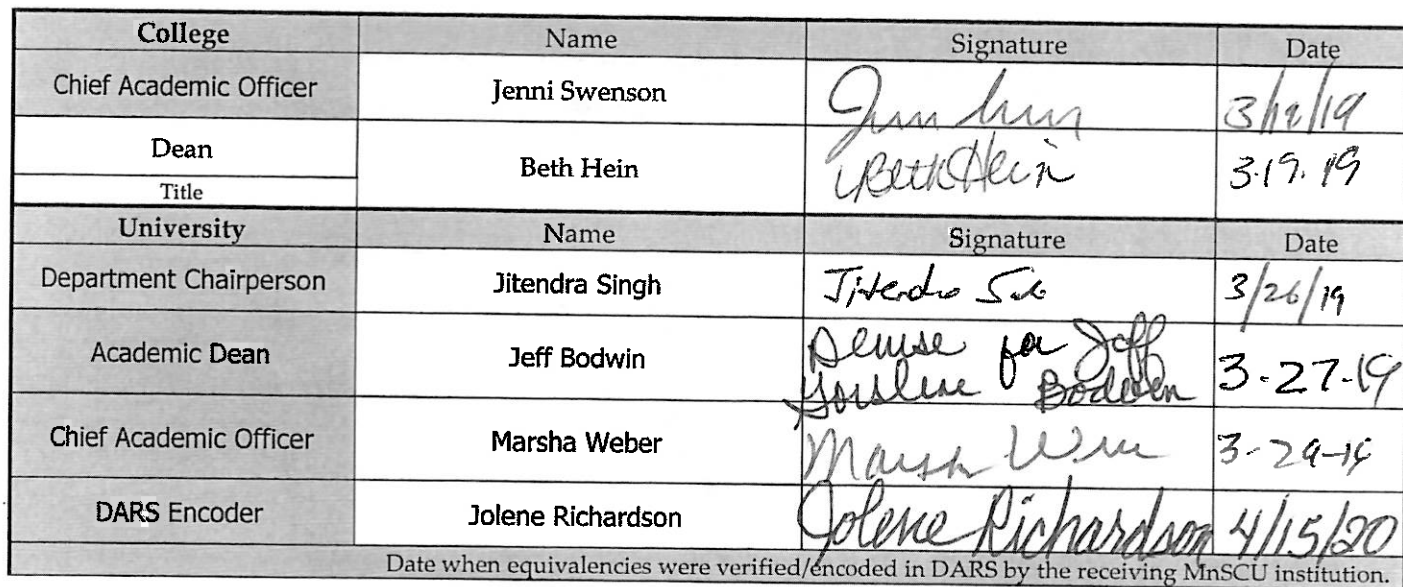 College Name Signature Date
Chief Academic Officer Jenni Swenson 3/19/19
Dean Beth Hein Beth Hein 3.19.19
Title
University Name Signature Date
Department Chairperson Jitendra Singh Jitendra 3/26/19
Academic Dean Jeff Bodwin Denise for Jeff 3-27-19
Gorsline Bodwin
Chief Academic Officer Marsha Weber Marsha 3-29-19
DARS Encoder Jolene Richardson Jolene Richardson 4/15/20
Date when equivalencies were verified/encoded in DARS by the receiving MnSCU institution.